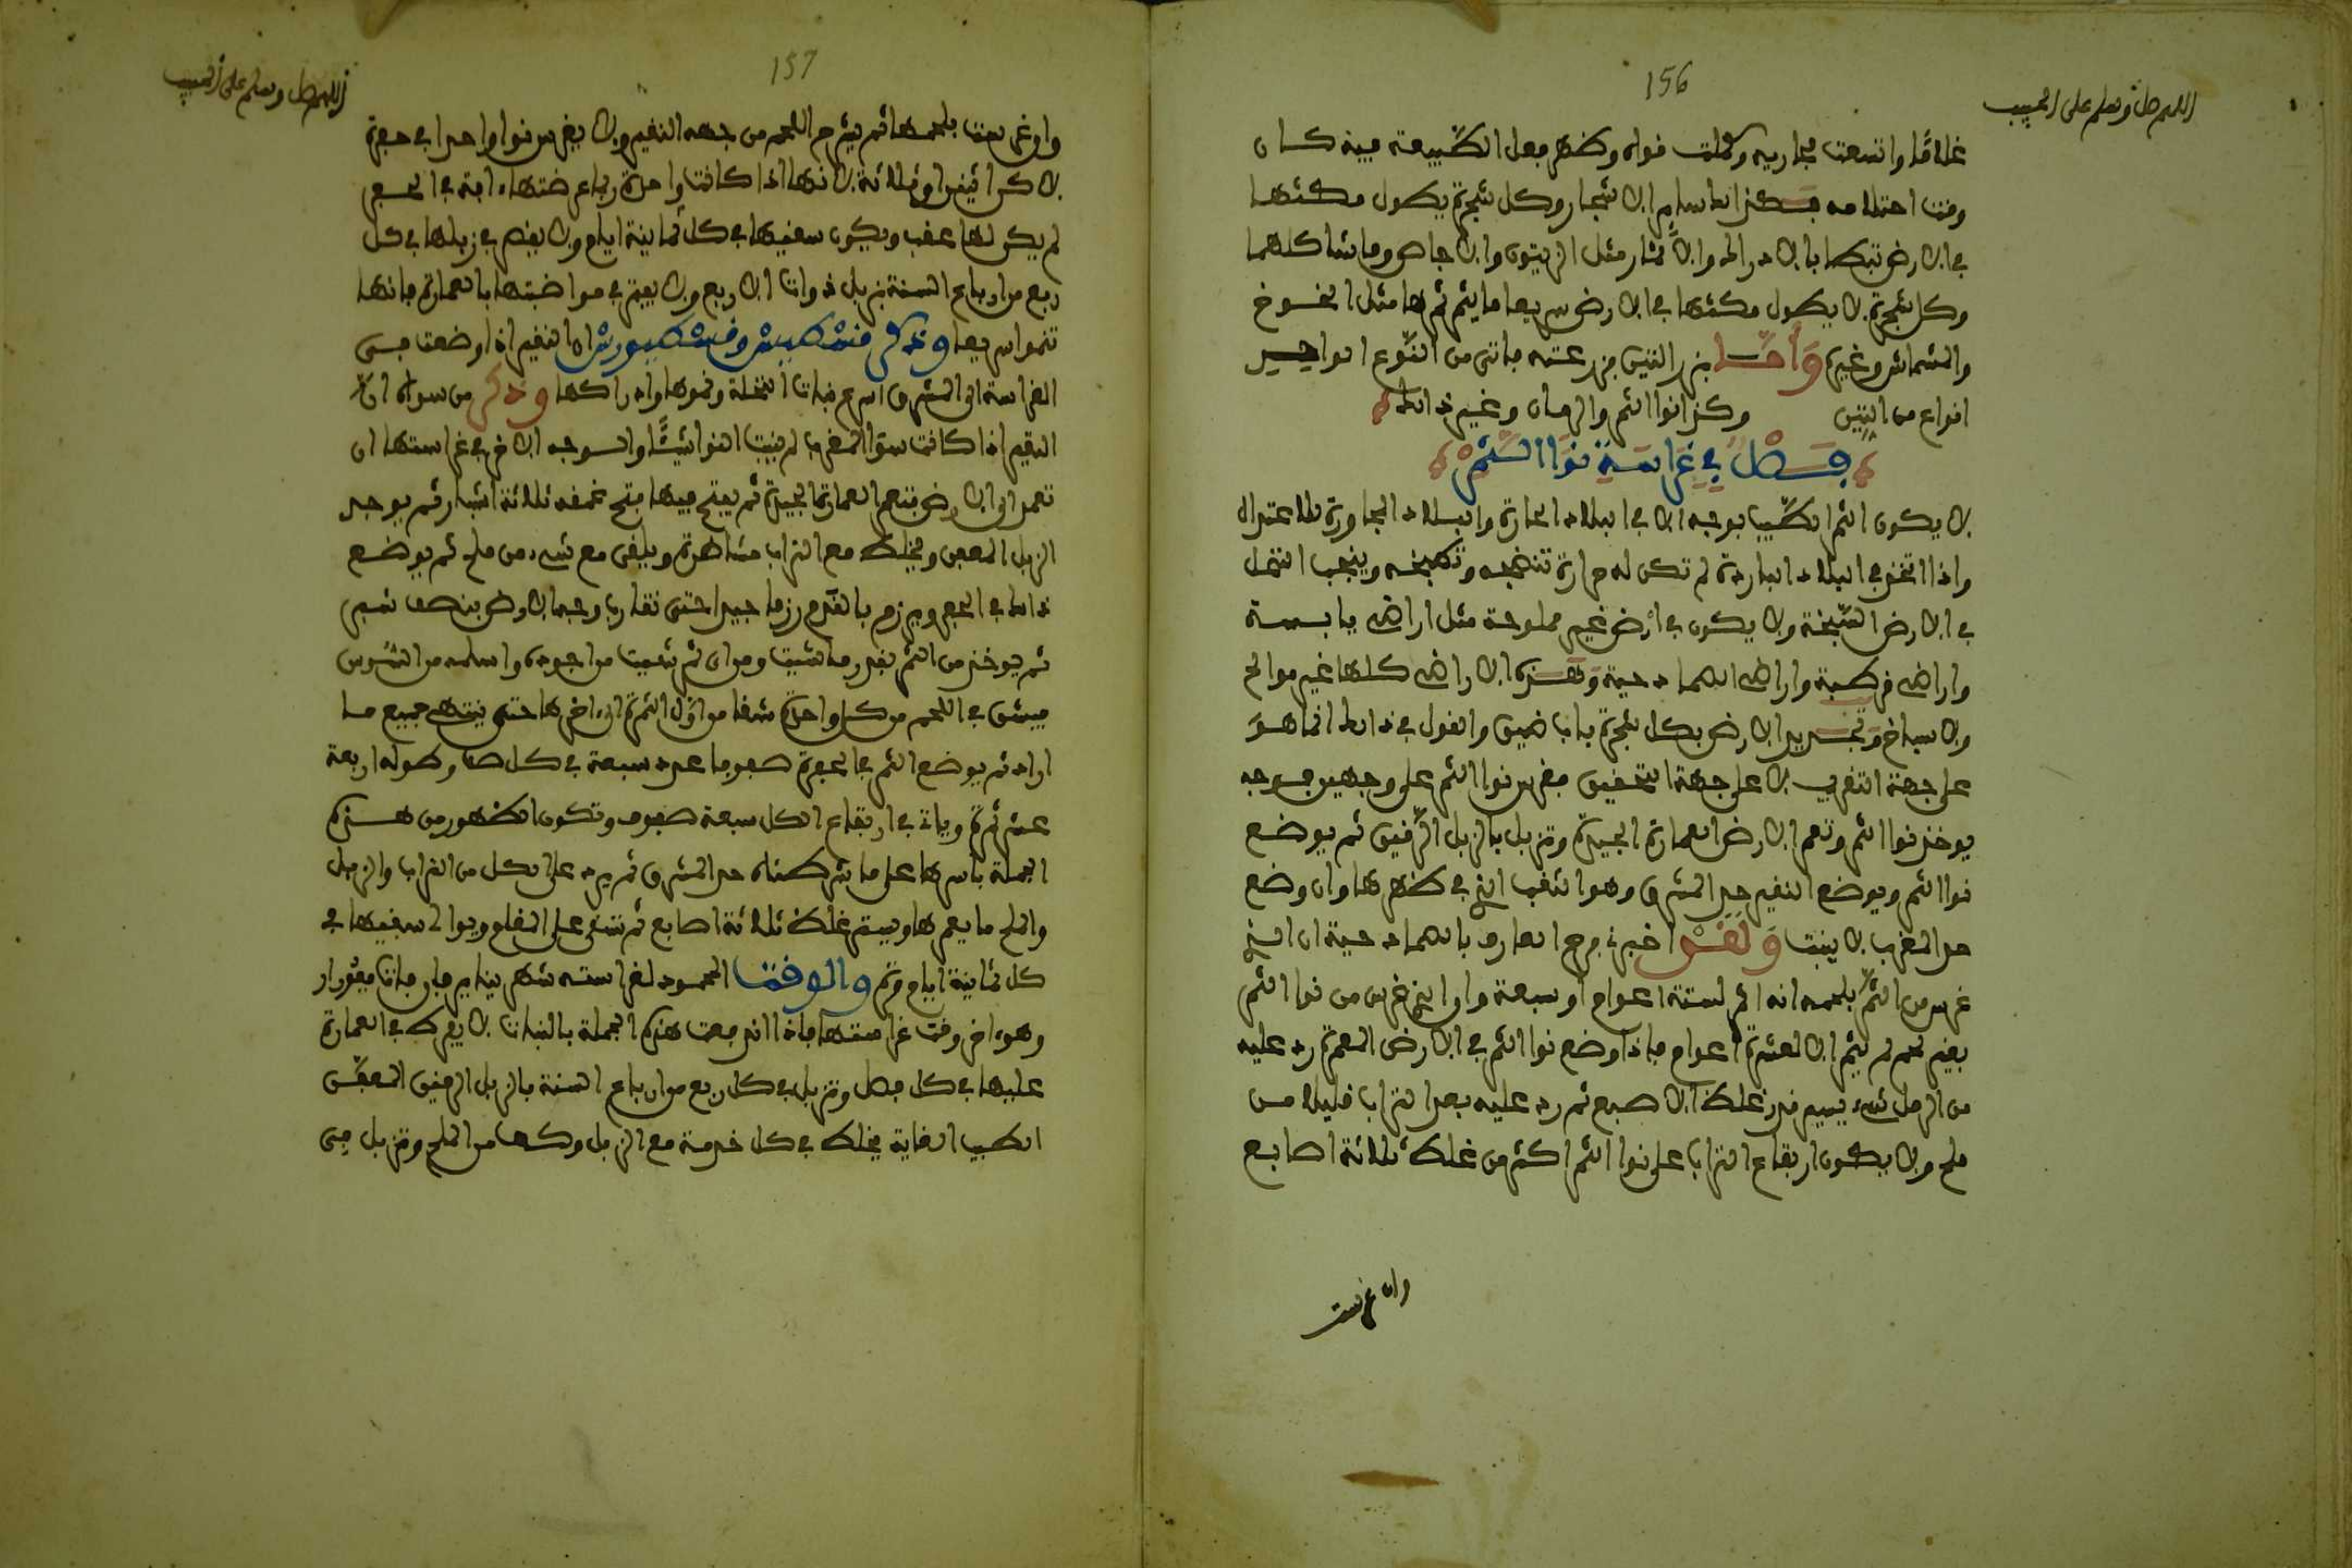 156
اللهم صل وسلم على الحبيب
غلاقا واتسعت مجاريه وكملت قواه وظهر فعل الطبيعة فيه كان
وقت احتلامه فكذلك ساير الاشجار وكل شجرة يطول مكثها
في الارض تبطا بالادراك والاثمار مثل الزيتون والاجاص وما شاكلهما
وكل شجرة لا يطول مكثها في الارض سريعا ما يتم ثمرها مثل الخوخ
والمشماش وغيره وأما بزر التين فزرعته فاتى من النوع الواحد
انواع من التين وكذا نوا التمر والرمان وغير ذلك
فصل في غراسة نوا التمر
لا يكون التمر الطيب بوجه الا في البلاد الحارة والبلاد المجاورة للاعتدال
واذا اتخذ في البلاد الباردة لم تكن له حرارة تنضجه وتطبخه وينجب النخل
في الارض السبخة ولا يكون في ارض غير مملوحة مثل اراضي يابسة
واراضي قرطبة واراضي الصمادحية وهذه الاراضي كلها غير موالح
ولا سباخ وتحديد الارض بكل شجرة باب ضيق والقول في ذلك انما هو
على جهة التقريب لا على جهة التحقيق فغرس نوا التمر على وجهين فوجه
يوخذ نوا التمر وتعمر الارض العمارة الجيدة وتزبل بالزبل الرقيق ثم يوضع
نوا التمر ويوضع النقير حد المشرق وهو الثقب الذي في ظهرها وان وضع
حد المغرب لا ينبت ولقد اخبرني فرج العارف بالصمادحية ان الذي
غرس من التمر بلحمه انه اثمر لستة اعوام او سبعة وان الذي غرس من نوا التمر
بغير لحم لم يثمر الا لعشرة اعوام فاذا وضع نوا التمر في الارض المعمرة رد عليه
من الرمل شيء يسير قدر غلظ الاصبع ثم رد عليه بعد التراب قليلا من
ملح ولا يكون ارتفاع التراب على نوا التمر اكثر من غلظ ثلاثة اصابع
وان غرست
157
اللهم صل وسلم على الحبيب
وان غرست بلحمها ثم يشرح اللحم من جهه النقير ولا يغرس نوا واحدا في حفرة
لاكن اثنين او ثلاثة لانها اذا كانت واحدة ربما عرضتها افة في الحفر
لم يكن لها عقب ويكون سقيها في كل ثمانية ايام ولا يقصر في زبلها في كل
ربع من ارباع السنة بزبل ذوات الاربع ولا يفتر في مواضبتها بالعمارة فانها
تنموا سريعا وذكر قسطيس وقسطيورس ان النقير اذا وضعت حين
الغراسة الى المشرق اسرع نبات النخلة ونموها وادراكها وذكر من سواه ان
النقير اذا كانت سوا المغرب لم ينبت النوا شيئا والوجه الاخر في غراستها ان
تعمد الى الارض فتعمر العمارة الجيدة ثم يفتح فيها فتح عمقه ثلاثة اشبار ثم يوجد
الزبل المعفن ويخلط مع التراب مشاطرة ويلقى مع شيء من ملح ثم يوضع
ذلك في الحفر ويرزم بالقدم رزما جيدا حتى تقارب وجه الارض بنصف شبر
ثم يوخذ من التمر بقدر ما شيت ومن اي ثمر شيت من اجوده واسلمه من السوس
فيشق في اللحم من كل واحدة شقا من اول الثمرة الى اخرها حتى ينتهي جميع ما
اراد ثم يوضع التمر في الحفرة صفوفا عدد سبعة في كل صف وطوله اربعة
عشر ثمرة ويات في ارتفاع الكل سبعة صفوف وتكون الظهور من هذه
الجملة باسرها على ما شرطناه حد المشرق ثم يرد على الكل من التراب والزبل
والملح ما يعمرها ويستر غلظ ثلاثة اصابع ثم تسقى على المقلع ويوالى سقيها في
كل ثمانية ايام مرة والوقت المحمود لغراسته شهر يناير فان فات فمن ادار
وهو اخر وقت غراستها فاذا اندفعت هذه الجملة بالنبات لا يفرط في العمارة
عليها في كل فصل وتزبل في كل ربع من ارباع السنة بالزبل الرقيق المعفن
الطيب الغاية يخلط في كل خدمة مع الزبل وكها من الملح وتزبل حين